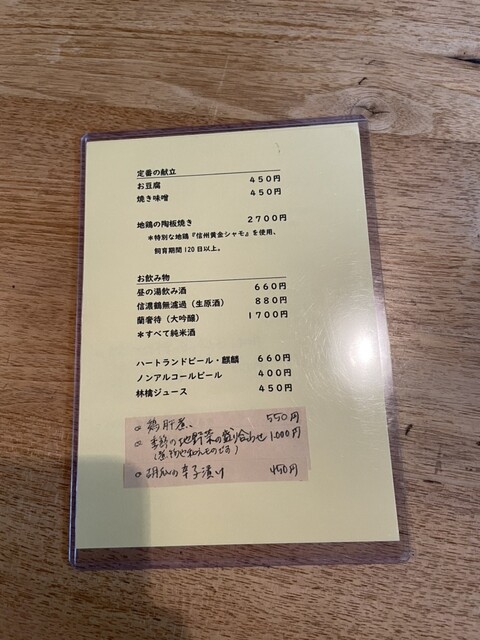 定番の献立
お豆腐 450円
焼き味噌 450円
地鶏の陶板焼き 2700円
＊特別な地鶏『信州黄金シャモ』を使用、
飼育期間120日以上。
お飲み物
昼の湯飲み酒 660円
信濃鶴無濾過（生原酒） 880円
蘭奢待（大吟醸） 1700円
＊すべて純米酒
ハートランドビール・麒麟 660円
ノンアルコールビール 400円
林檎ジュース 450円
○ 鶏肝煮 550円
○ 季節の地野菜の盛り合わせ 1,000円
○ 胡瓜の辛子漬け 450円